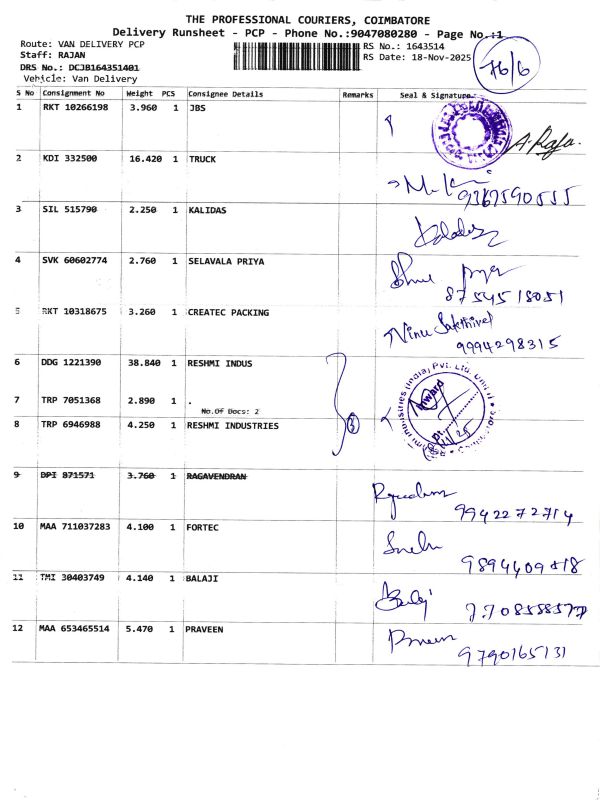 THE PROFESSIONAL COURIERS, COIMBATORE
Delivery Runsheet - PCP - Phone No.:9047080280 - Page No.:1
Route: VAN DELIVERY PCP
Staff: RAJAN
DRS No.: DCJB164351401
Vehicle: Van Delivery
RS No.: 1643514
RS Date: 18-Nov-2025
76/6
S No Consignment No Weight PCS Consignee Details Remarks Seal & Signature
1 RKT 10266198 3.960 1 JBS
A. Raja.
2 KDI 332500 16.420 1 TRUCK
9367590555
3 SIL 515790 2.250 1 KALIDAS
4 SVK 60602774 2.760 1 SELAVALA PRIYA
8754518051
5 RKT 10318675 3.260 1 CREATEC PACKING
Vinu Sakthivel
9994298315
6 DDG 1221390 38.840 1 RESHMI INDUS
7 TRP 7051368 2.890 1 .
No.Of Docs: 2
8 TRP 6946988 4.250 1 RESHMI INDUSTRIES
3
9 DPI 871571 3.760 1 RAGAVENDRAN
9942272714
10 MAA 711037283 4.100 1 FORTEC
11 TMI 30403749 4.140 1 BALAJI
Balaji
12 MAA 653465514 5.470 1 PRAVEEN
9790165131